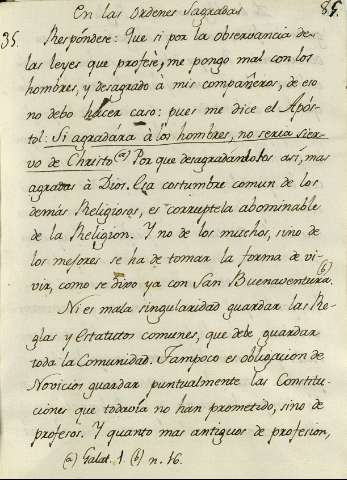 En las Ordenes Sagradas 85.
35. Respóndese: Que si por la observancia de
las leyes que profesé, me pongo mal con los
hombres, y desagrado à mis compañeros, de eso
no debo hacer caso: pues me dice el Após-
tol: Si agradára à los hombres, no seria sier-
vo de Christo (a) Por que desagradandolos así, mas
agradas à Dios. Esa costumbre comun de los
demás Religiosos, es corruptela abominable
de la Religion. Y no de los muchos, sino de
los mejores se ha de tomar la forma de vi-
vir, como se dixo ya con San Buenaventura. (b)
Ni es mala singularidad guardar las Re-
glas y Estatutos comunes, que debe guardar
toda la Comunidad. Tampoco es obligacion de
Novicios guardar puntualmente las Constitu-
ciones que todavia no han prometido, sino de
profesos. Y quanto mas antiguos de profesion,
(a) Galat. 1. (b) n. 16.